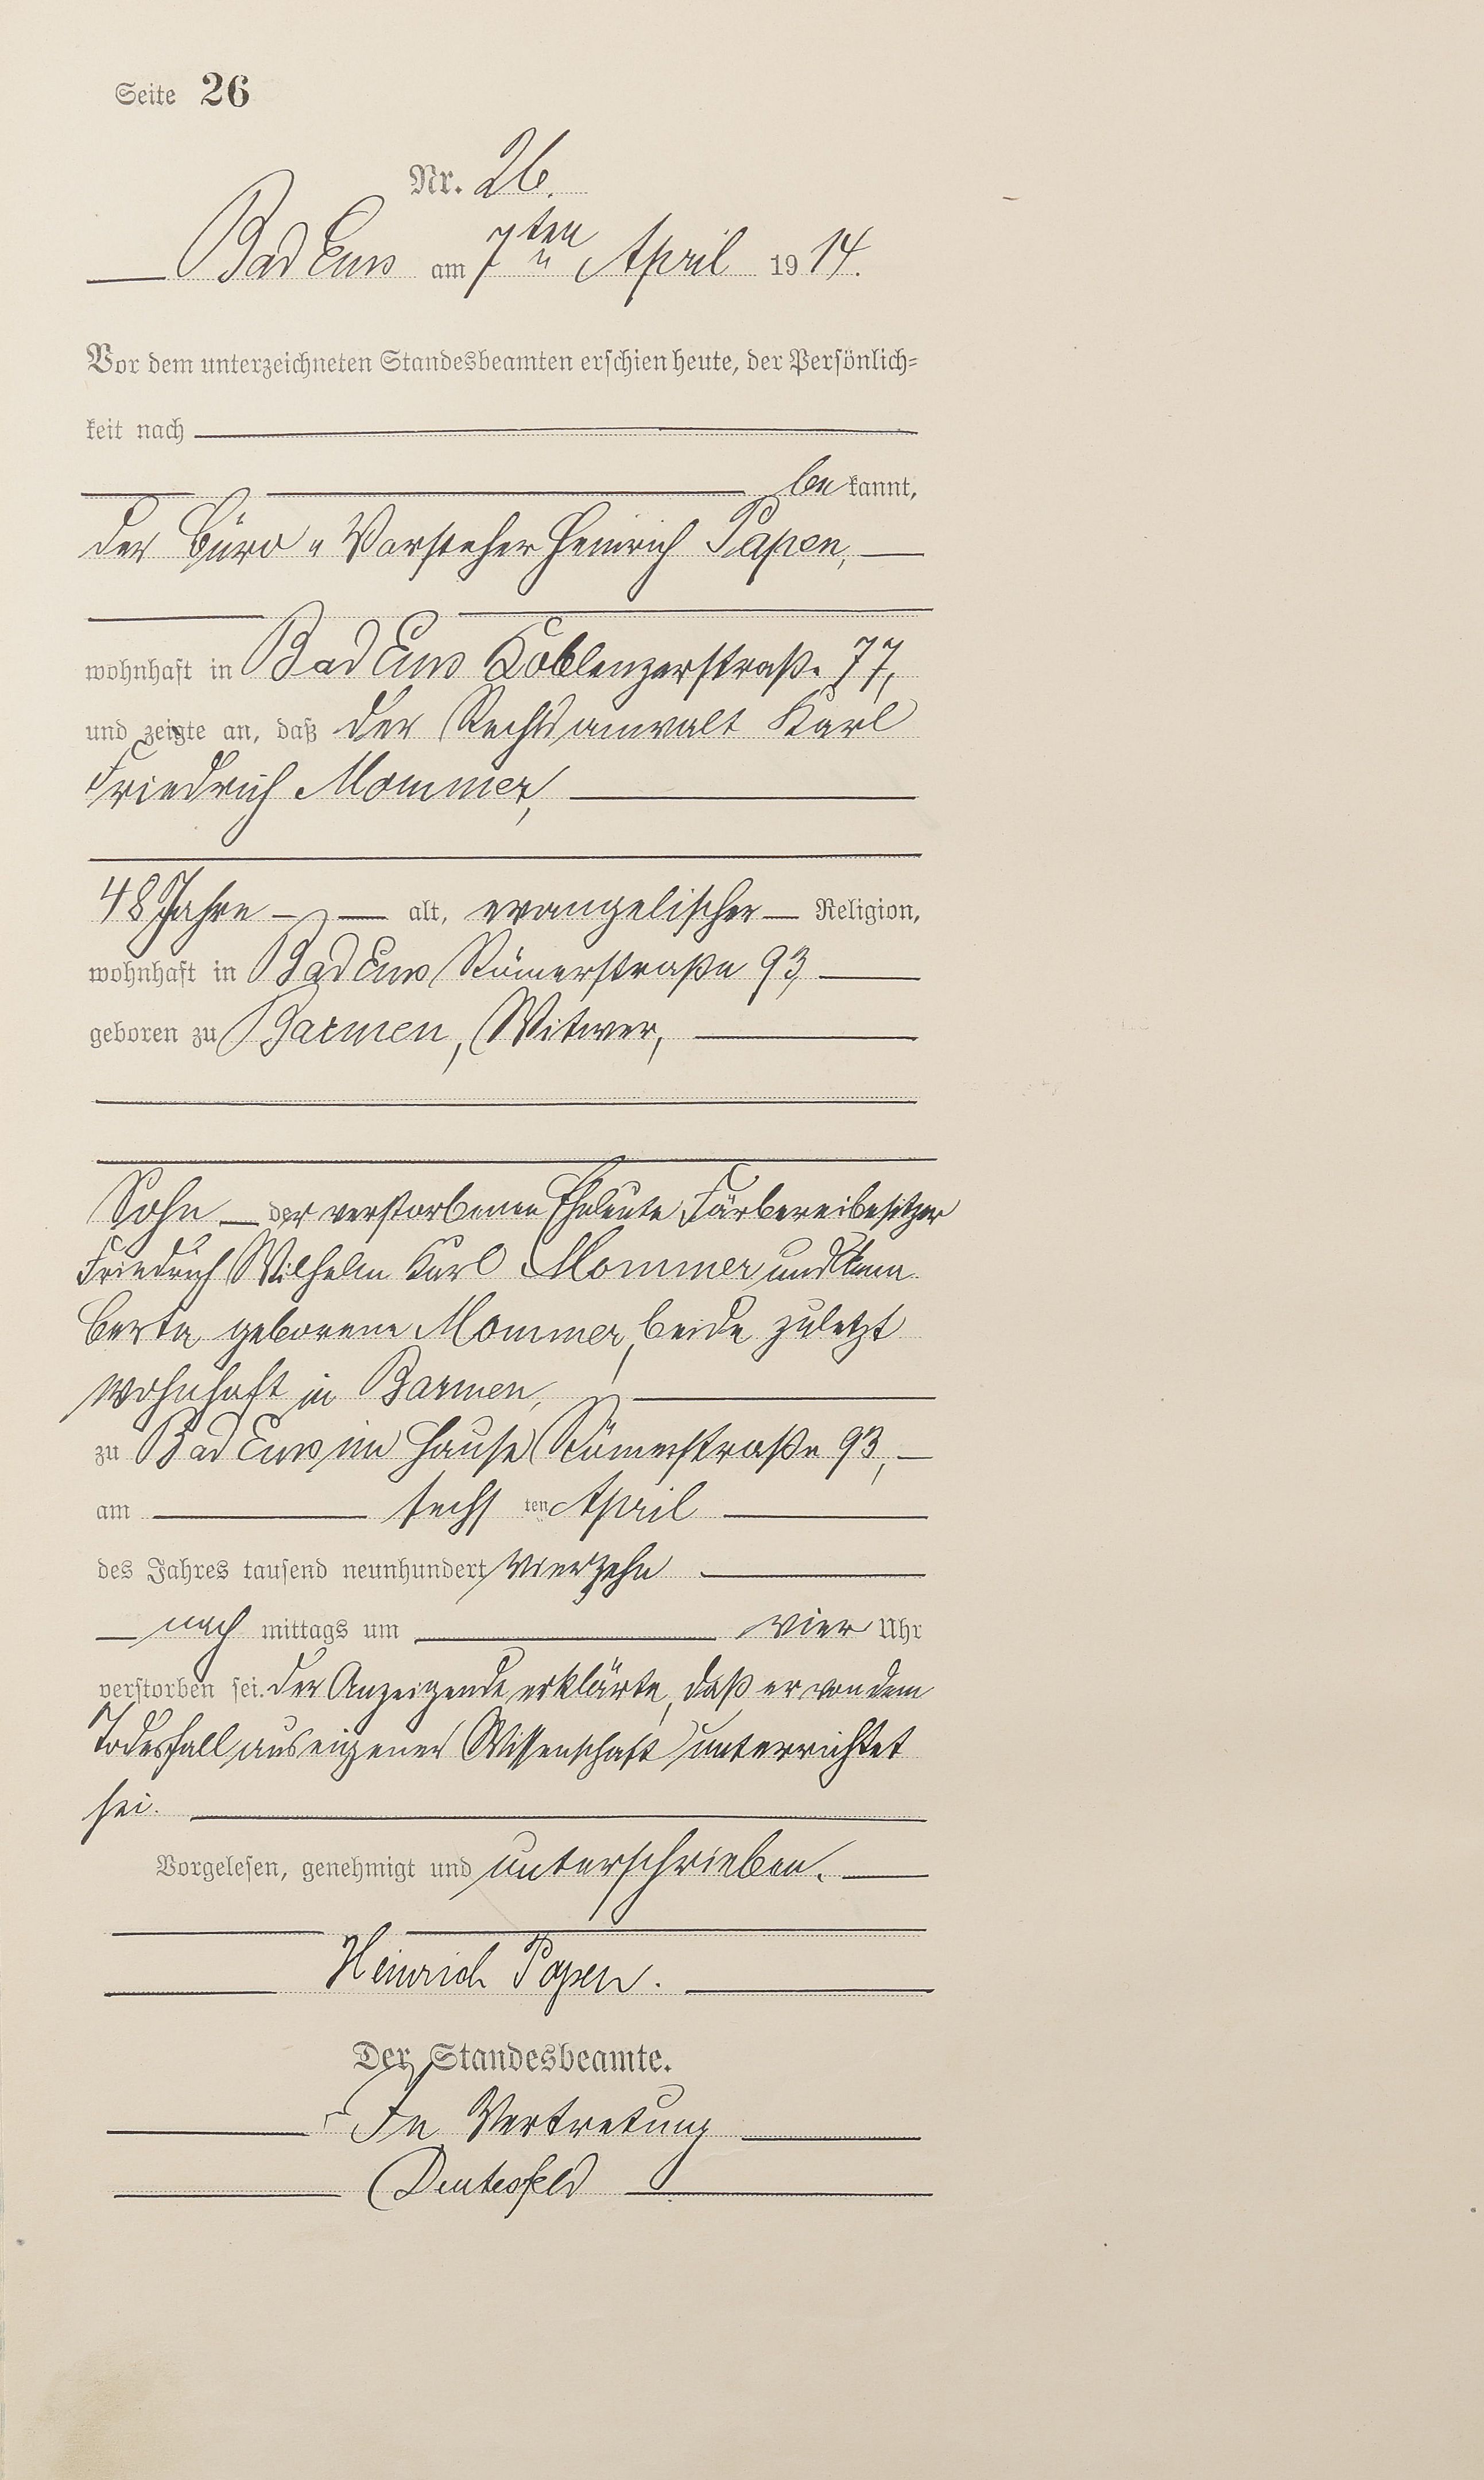 Seite 26
Nr. 26.
Bad Ems am 7ten April 1914.
Vor dem unterzeichneten Standesbeamten erschien heute, der Persönlich-
keit nach
be kannt,
der Büro-Vorsteher Heinrich Papen,
wohnhaft in Bad Ems Koblenzerstraße 77,
und zeigte an, daß der Rechtsanwalt Karl
Friedrich Mommer,
48 Jahre alt, evangelischer Religion,
wohnhaft in Bad Ems Römerstraße 93,
geboren zu Barmen, Witwer,
Sohn der verstorbenen Eheleute Färbereibesitzer
Friedrich Wilhelm Karl Mommer und
Berta geborene Mommer, beide zuletzt
wohnhaft in Barmen,
zu Bad Ems im Hause Römerstraße 93,
am sechs ten April
des Jahres tausend neunhundert vierzehn
nach mittags um vier Uhr
verstorben sei. Der Anzeigende erklärte, daß er von dem
Todesfall aus eigener Wissenschaft unterrichtet
sei.
Vorgelesen, genehmigt und unterschrieben.
Heinrich Papen.
Der Standesbeamte.
In Vertretung